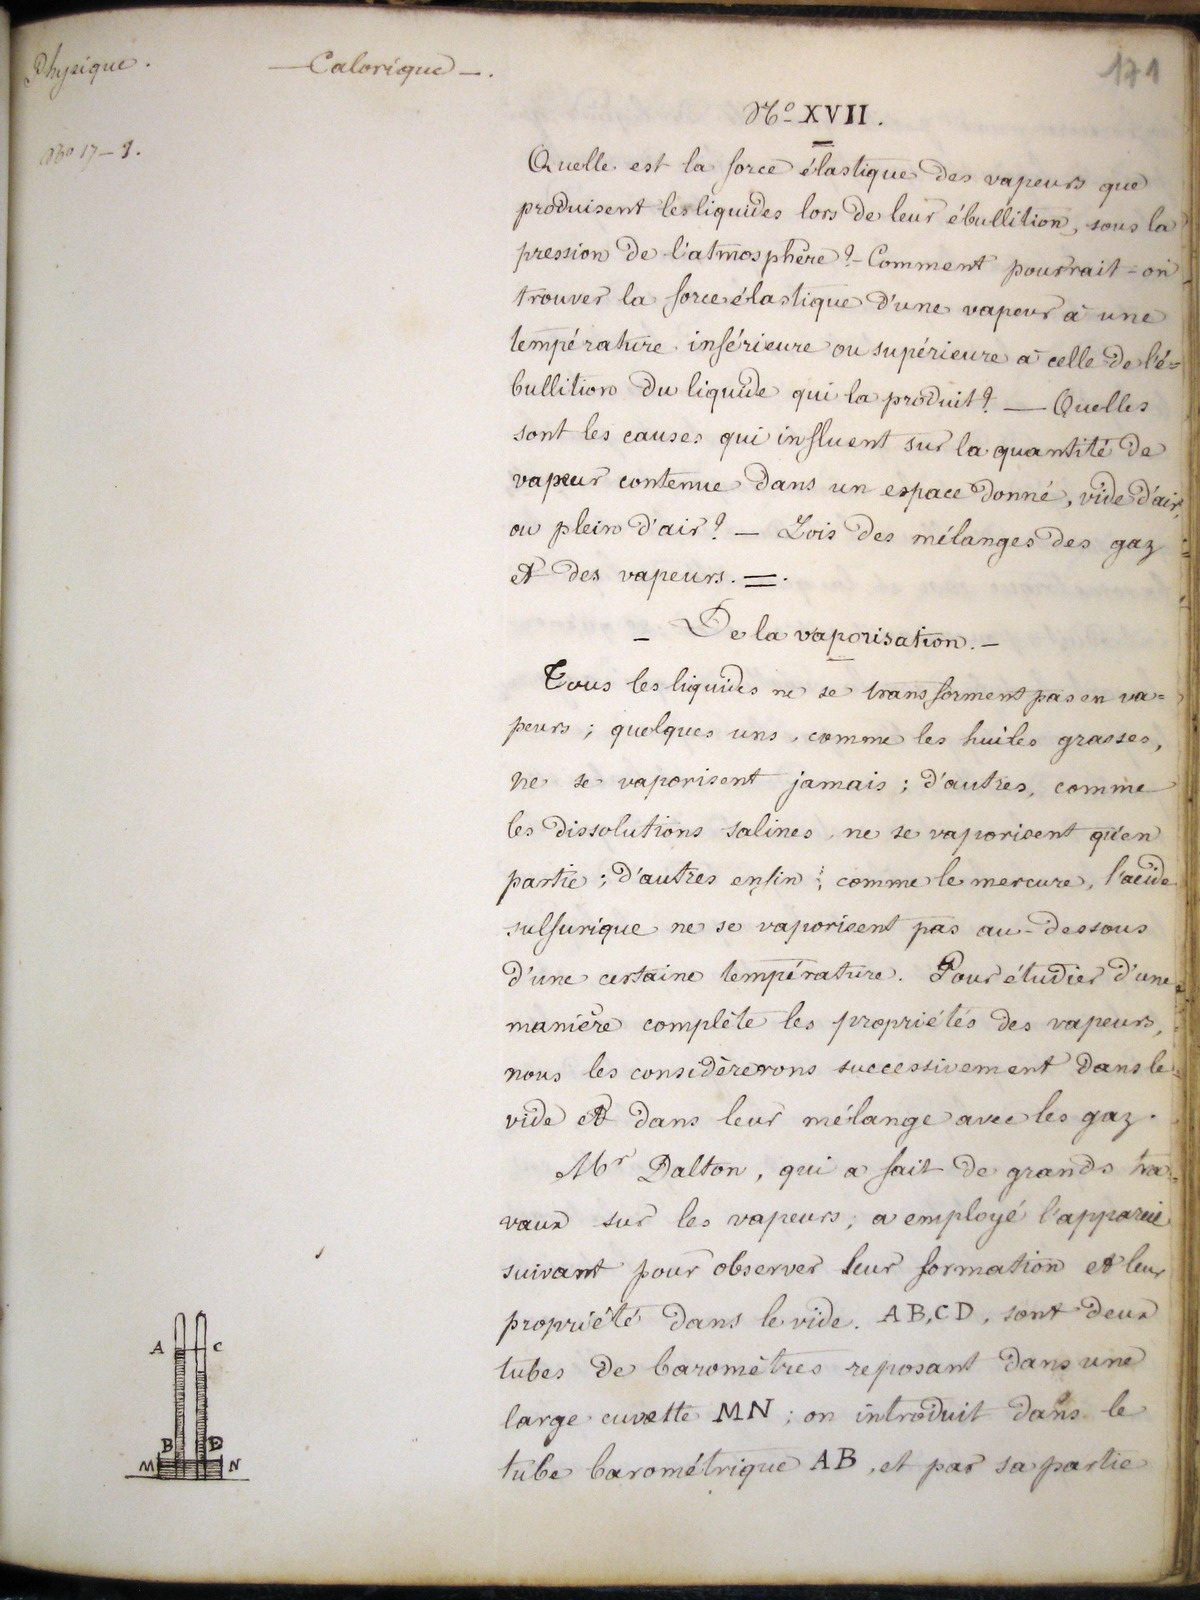 Physique.
— Calorique —.
171
No XVII.
No 17 - 1.
Quelle est la force élastique des vapeurs que
produisent les liquides lors de leur ébullition, sous la
pression de l'atmosphère ? - Comment pourrait-on
trouver la force élastique d'une vapeur à une
température inférieure ou supérieure à celle de l'é=
bullition du liquide qui la produit ? — Quelles
sont les causes qui influent sur la quantité de
vapeur contenue dans un espace donné, vide d'air,
ou plein d'air ? — Lois des mélanges des gaz
et des vapeurs. =.
- De la vaporisation. -
Tous les liquides ne se transforment pas en va=
peurs ; quelques uns, comme les huiles grasses,
ne se vaporisent jamais ; d'autres, comme
les dissolutions salines, ne se vaporisent qu'en
partie ; d'autres enfin ; comme le mercure, l'acide
sulfurique ne se vaporisent pas au-dessous
d'une certaine température. Pour étudier d'une
manière complète les propriétés des vapeurs,
nous les considèrerons successivement dans le
vide et dans leur mélange avec les gaz.
Mr Dalton, qui a fait de grands tra=
vaux sur les vapeurs, a employé l'appareil
suivant pour observer leur formation et leur
propriété dans le vide. AB, CD, sont deux
tubes de baromètres reposant dans une
large cuvette MN ; on introduit dans le
tube barométrique AB, et par sa partie
A C
B D
M N